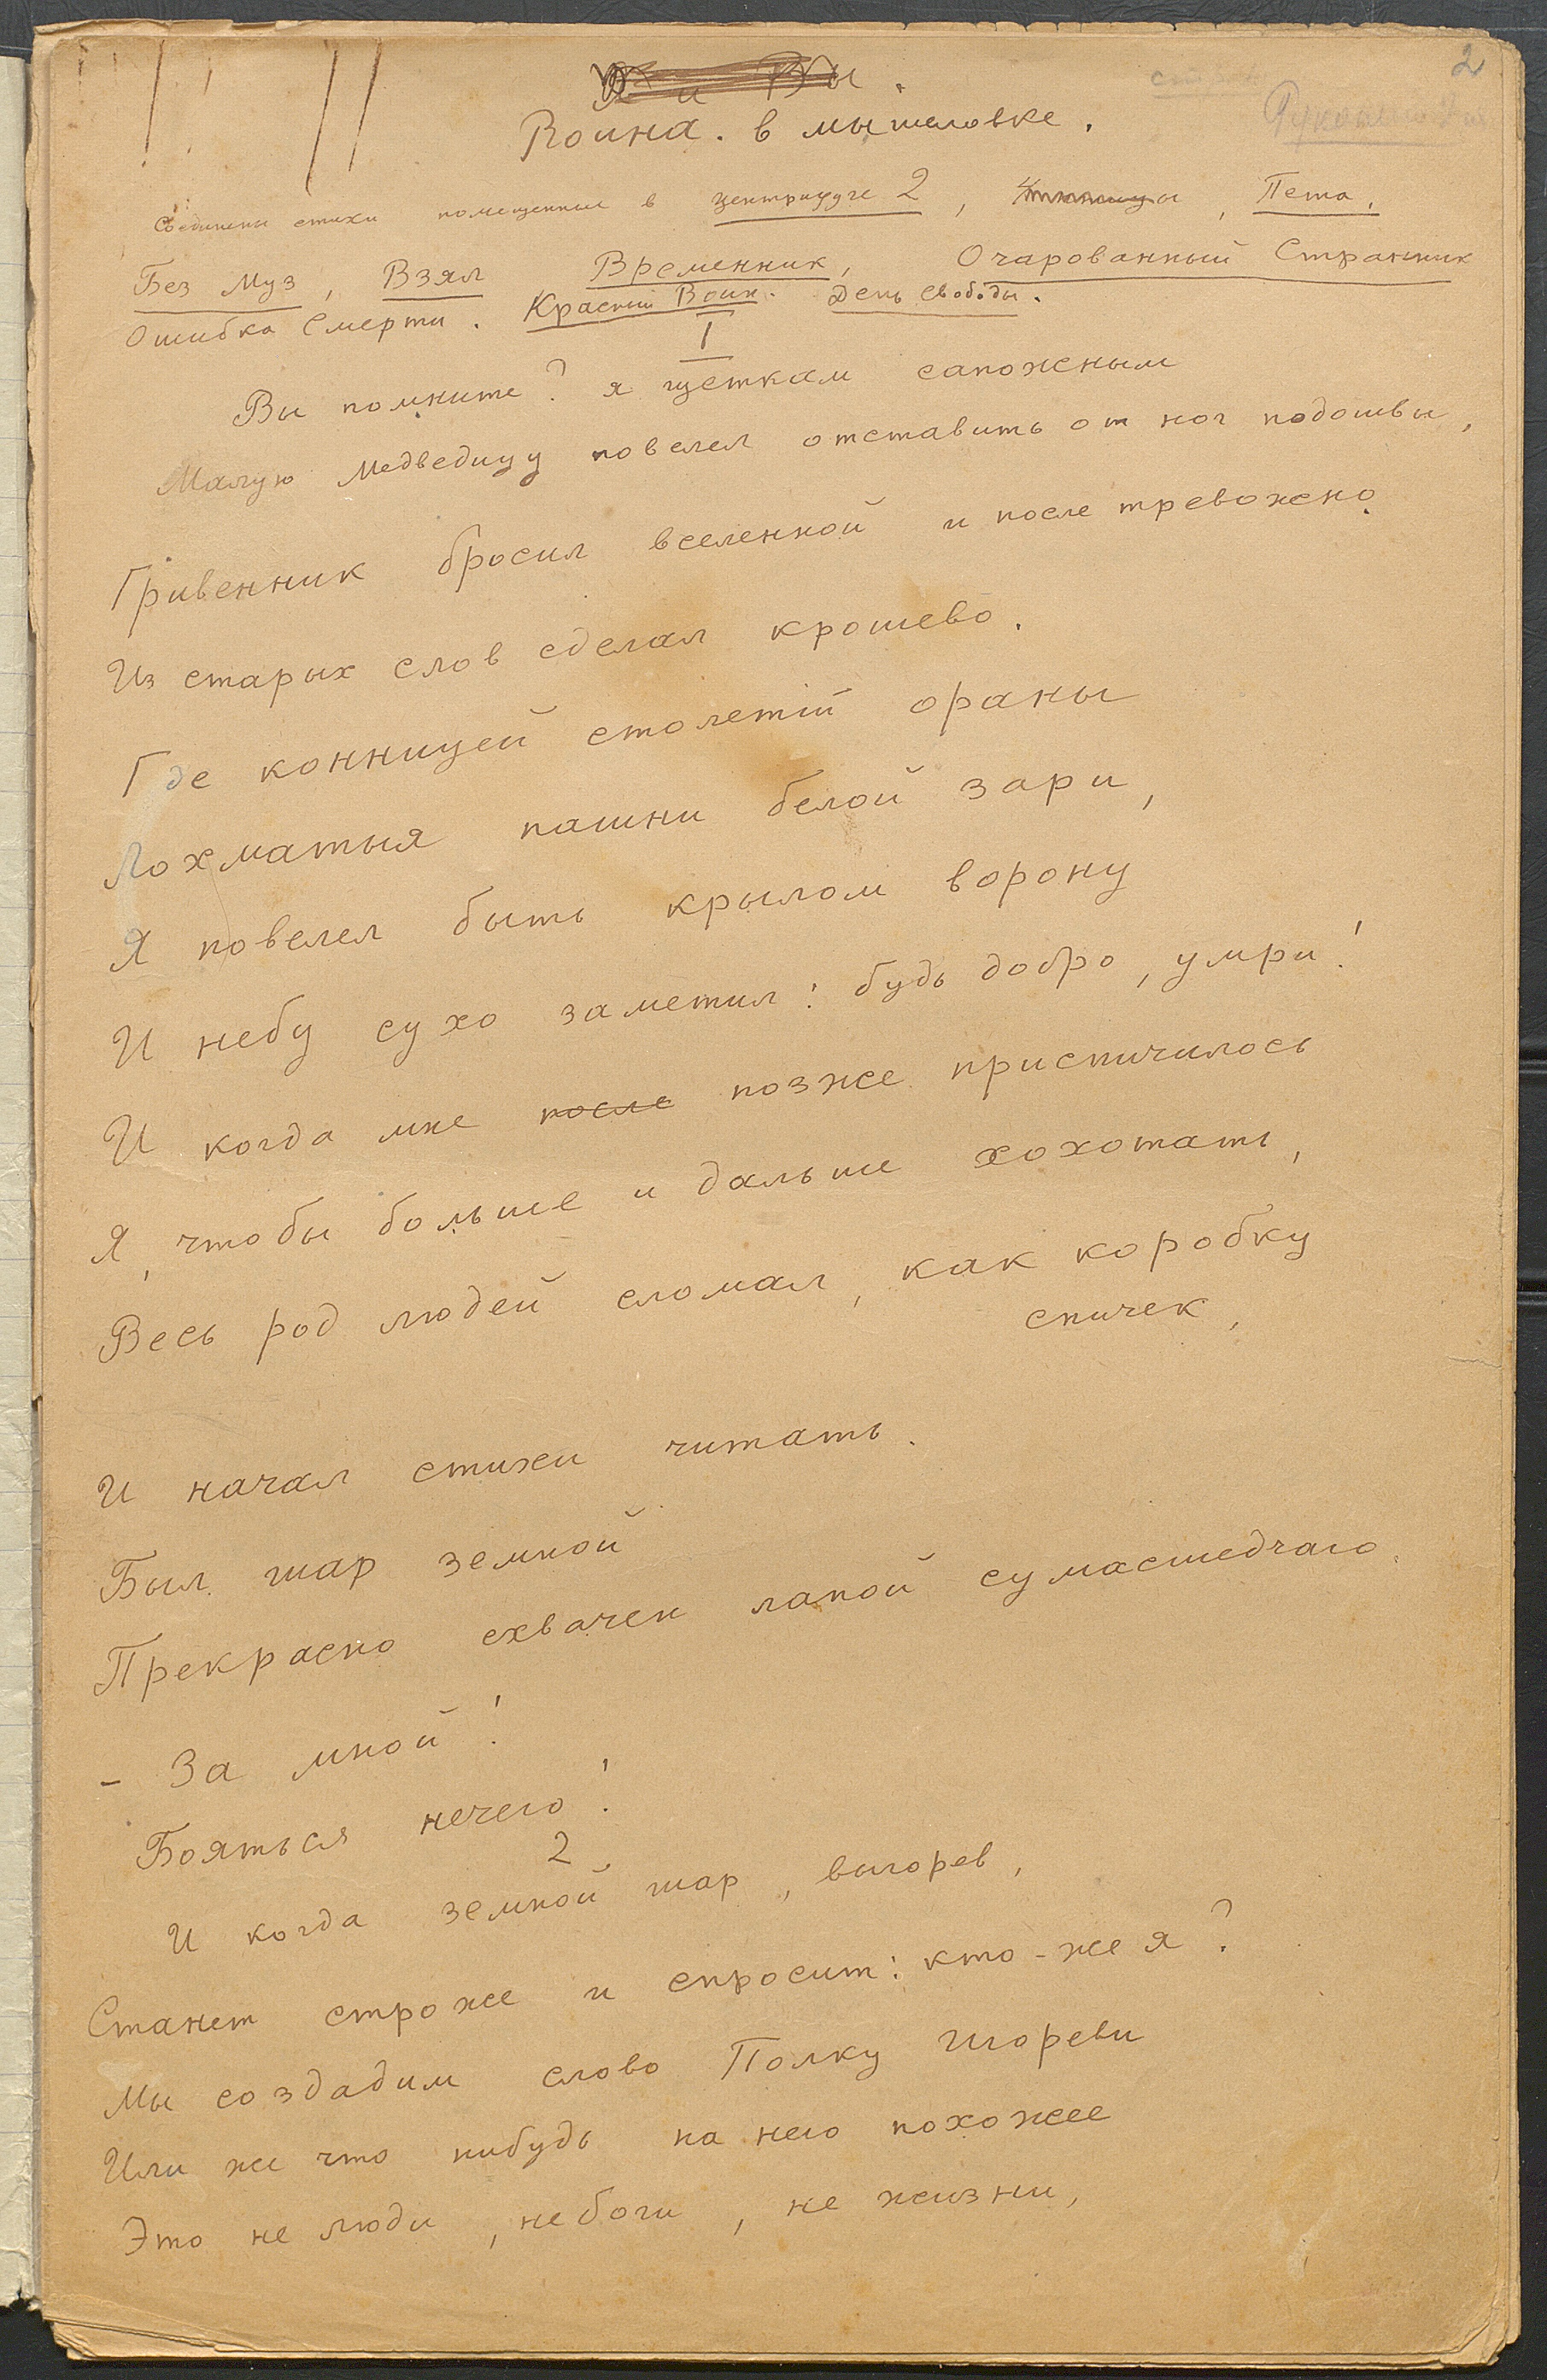 2
Я и Вы.
Воина. в мышеловке.
Соединены стихи помещенные в центрифуге 2, , Пета,
Без Муз, Взял, Временник, Очарованный Странник
Ошибка Смерти. Красный Воин. День свободы.
I
Вы помните? я щеткам сапожным
Малую Медведицу повелел отставить от ног подошвы,
Гривенник бросил вселенной и после тревожено
Из старых слов сделал крошево.
Где конницей столетій ораны
Лохматыя пашни белой зари,
Я повелел быть крылом ворону
И небу сухо заметил: будь добро, умри!
И когда мне после позже приспичилось
Я, чтобы больше и дальше хохотать,
Весь род людей сломал, как коробку
спичек,
И начал стихи читать.
Был шар земной
Прекрасно схвачен лапой сумасшедчаго.
- За мной!
Бояться нечего!
2
И когда земной шар, выгорев,
Станет строже и спросит: кто-же я?
Мы создадим слово Полку Игореви
Или же что нибудь на него похожее
Это не люди, не боги, не жизни,